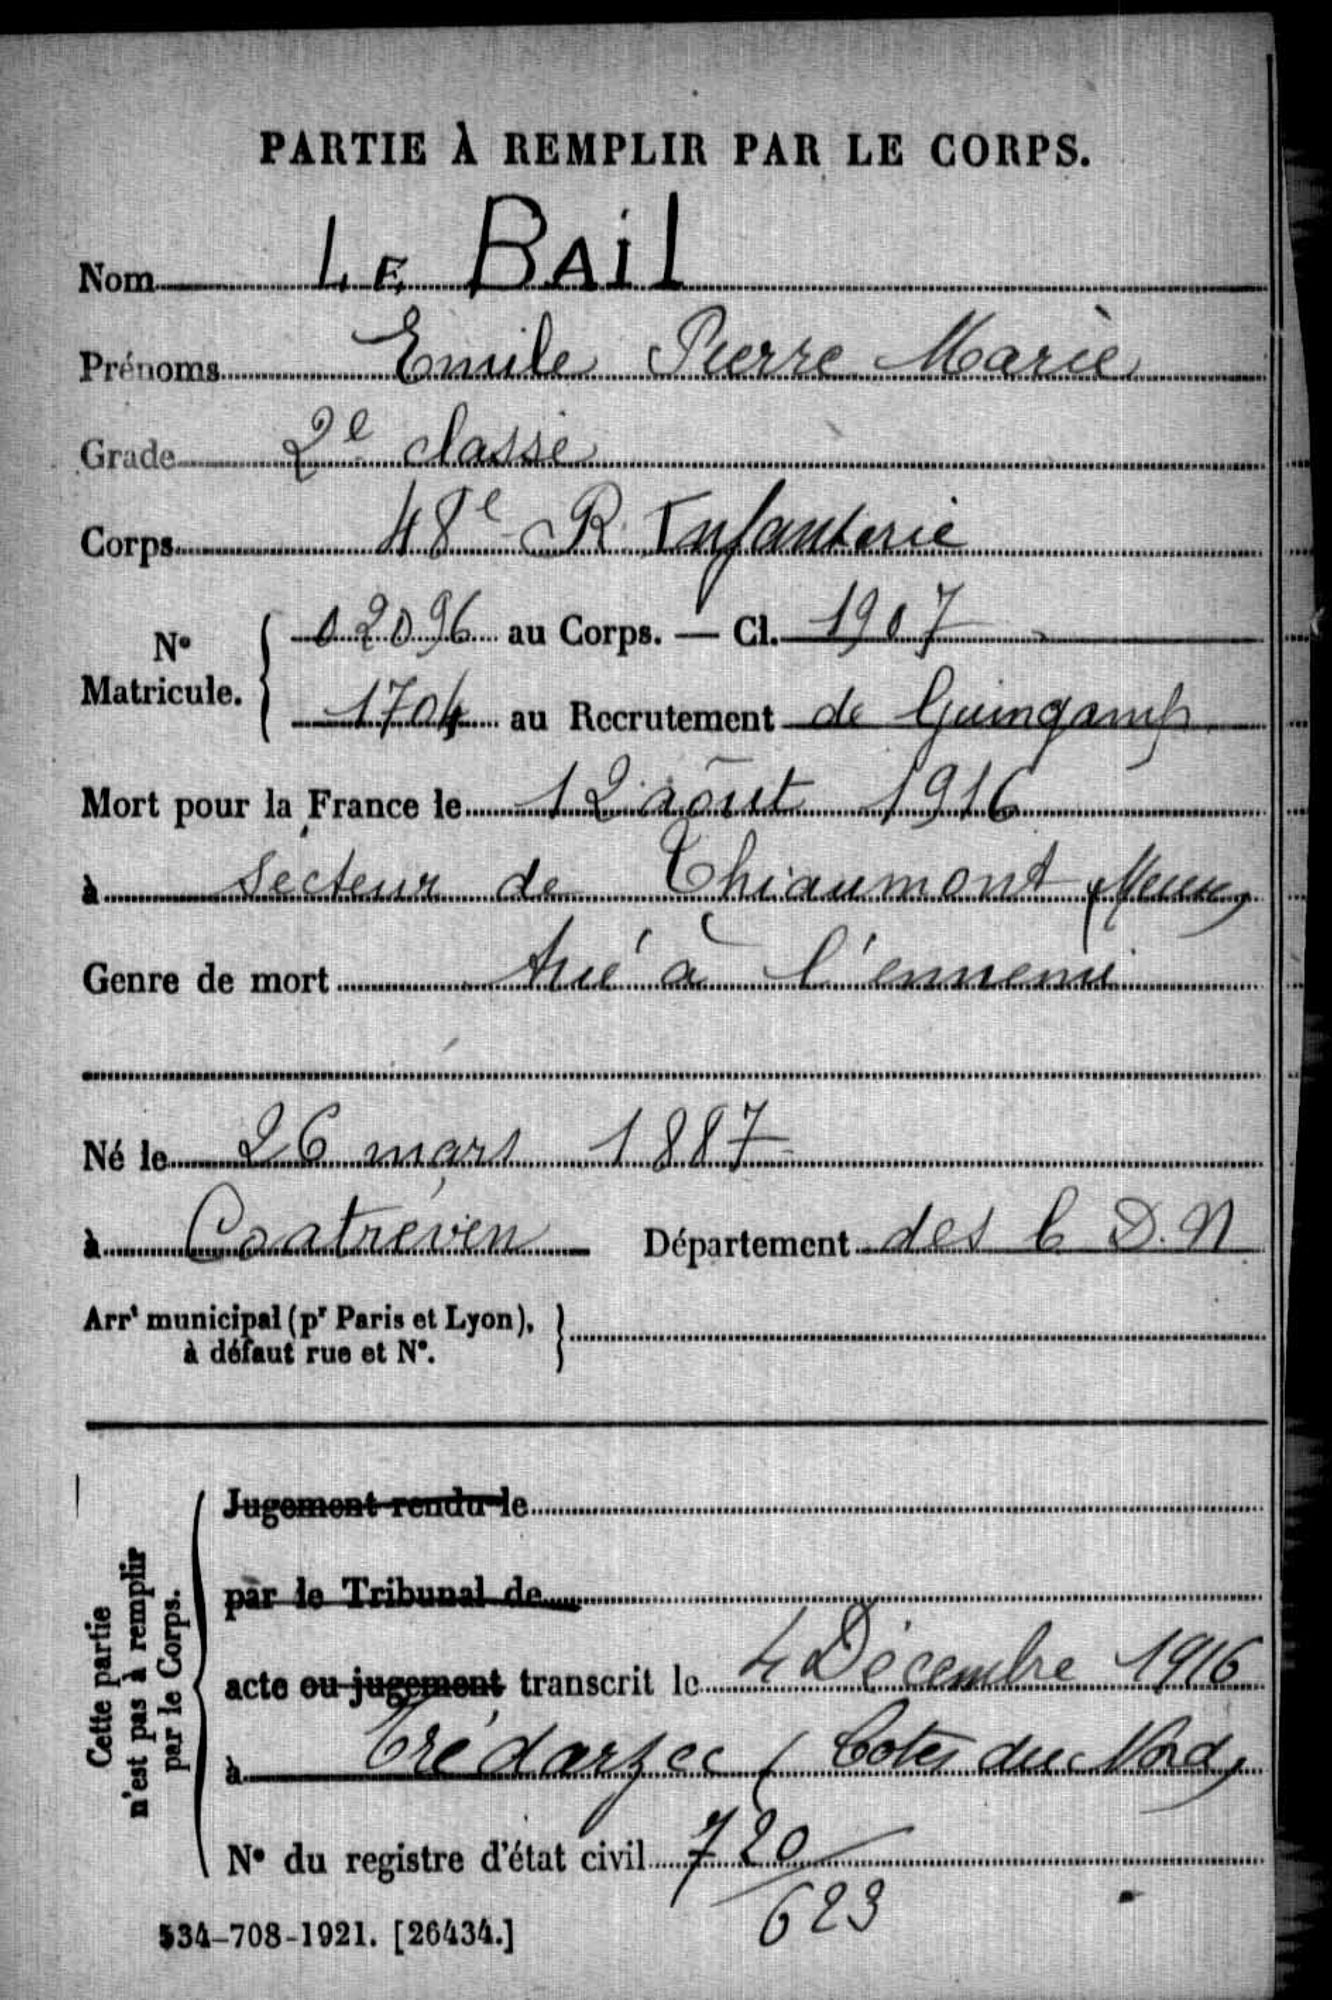 PARTIE À REMPLIR PAR LE CORPS.
Nom LE BAil
Prénoms Emile Pierre Marie
Grade 2e classe
Corps 48e R Infanterie
No Matricule. { 02096 au Corps. — Cl. 1907
1704 au Recrutement de Guingamp
Mort pour la France le 12 août 1916
à Secteur de Thiaumont (Meuse)
Genre de mort tué à l'ennemi
Né le 26 mars 1887
à Coatréven Département des C D.N
Arrt municipal (pr Paris et Lyon), }
à défaut rue et No.
Cette partie
n'est pas à remplir
par le Corps.
Jugement rendu le
par le Tribunal de
acte ou jugement transcrit le 4 Décembre 1916
à Trédarzec (Cotes du Nord)
No du registre d'état civil 720/
623
534-708-1921. [26434.]